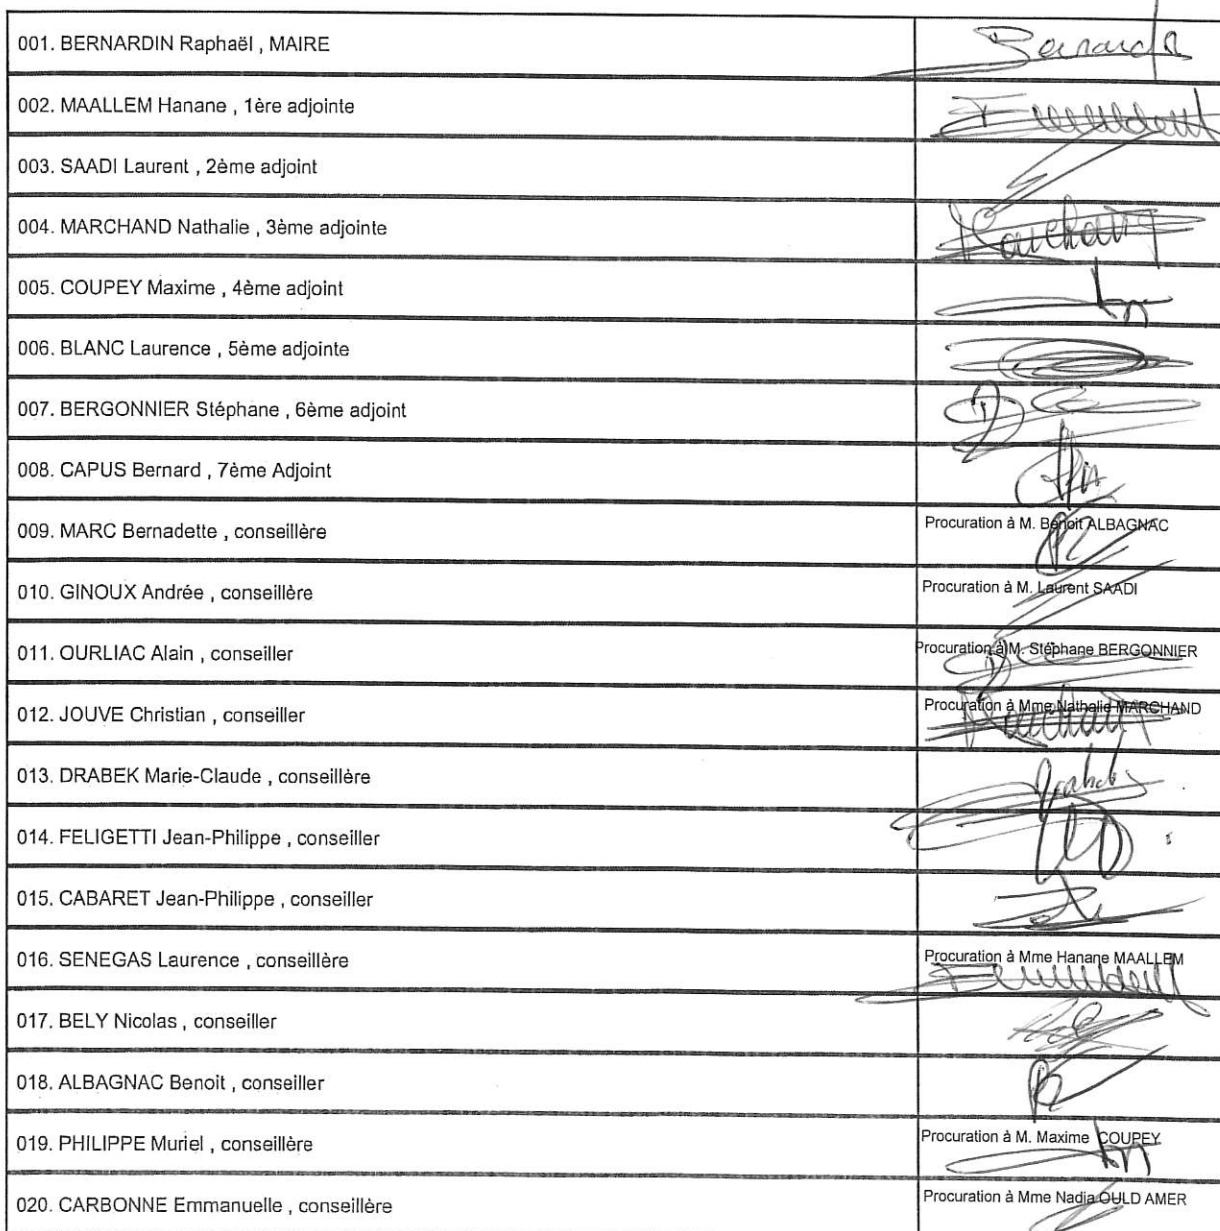 001. BERNARDIN Raphaël , MAIRE
002. MAALLEM Hanane , 1ère adjointe
003. SAADI Laurent , 2ème adjoint
004. MARCHAND Nathalie , 3ème adjointe
Marchand
005. COUPEY Maxime , 4ème adjoint
006. BLANC Laurence , 5ème adjointe
007. BERGONNIER Stéphane , 6ème adjoint
008. CAPUS Bernard , 7ème Adjoint
009. MARC Bernadette , conseillère
Procuration à M. Benoit ALBAGNAC
010. GINOUX Andrée , conseillère
Procuration à M. Laurent SAADI
011. OURLIAC Alain , conseiller
Procuration à M. Stéphane BERGONNIER
012. JOUVE Christian , conseiller
Procuration à Mme Nathalie MARCHAND
Marchand
013. DRABEK Marie-Claude , conseillère
014. FELIGETTI Jean-Philippe , conseiller
015. CABARET Jean-Philippe , conseiller
016. SENEGAS Laurence , conseillère
Procuration à Mme Hanane MAALLEM
017. BELY Nicolas , conseiller
018. ALBAGNAC Benoit , conseiller
019. PHILIPPE Muriel , conseillère
Procuration à M. Maxime COUPEY
020. CARBONNE Emmanuelle , conseillère
Procuration à Mme Nadia OULD AMER